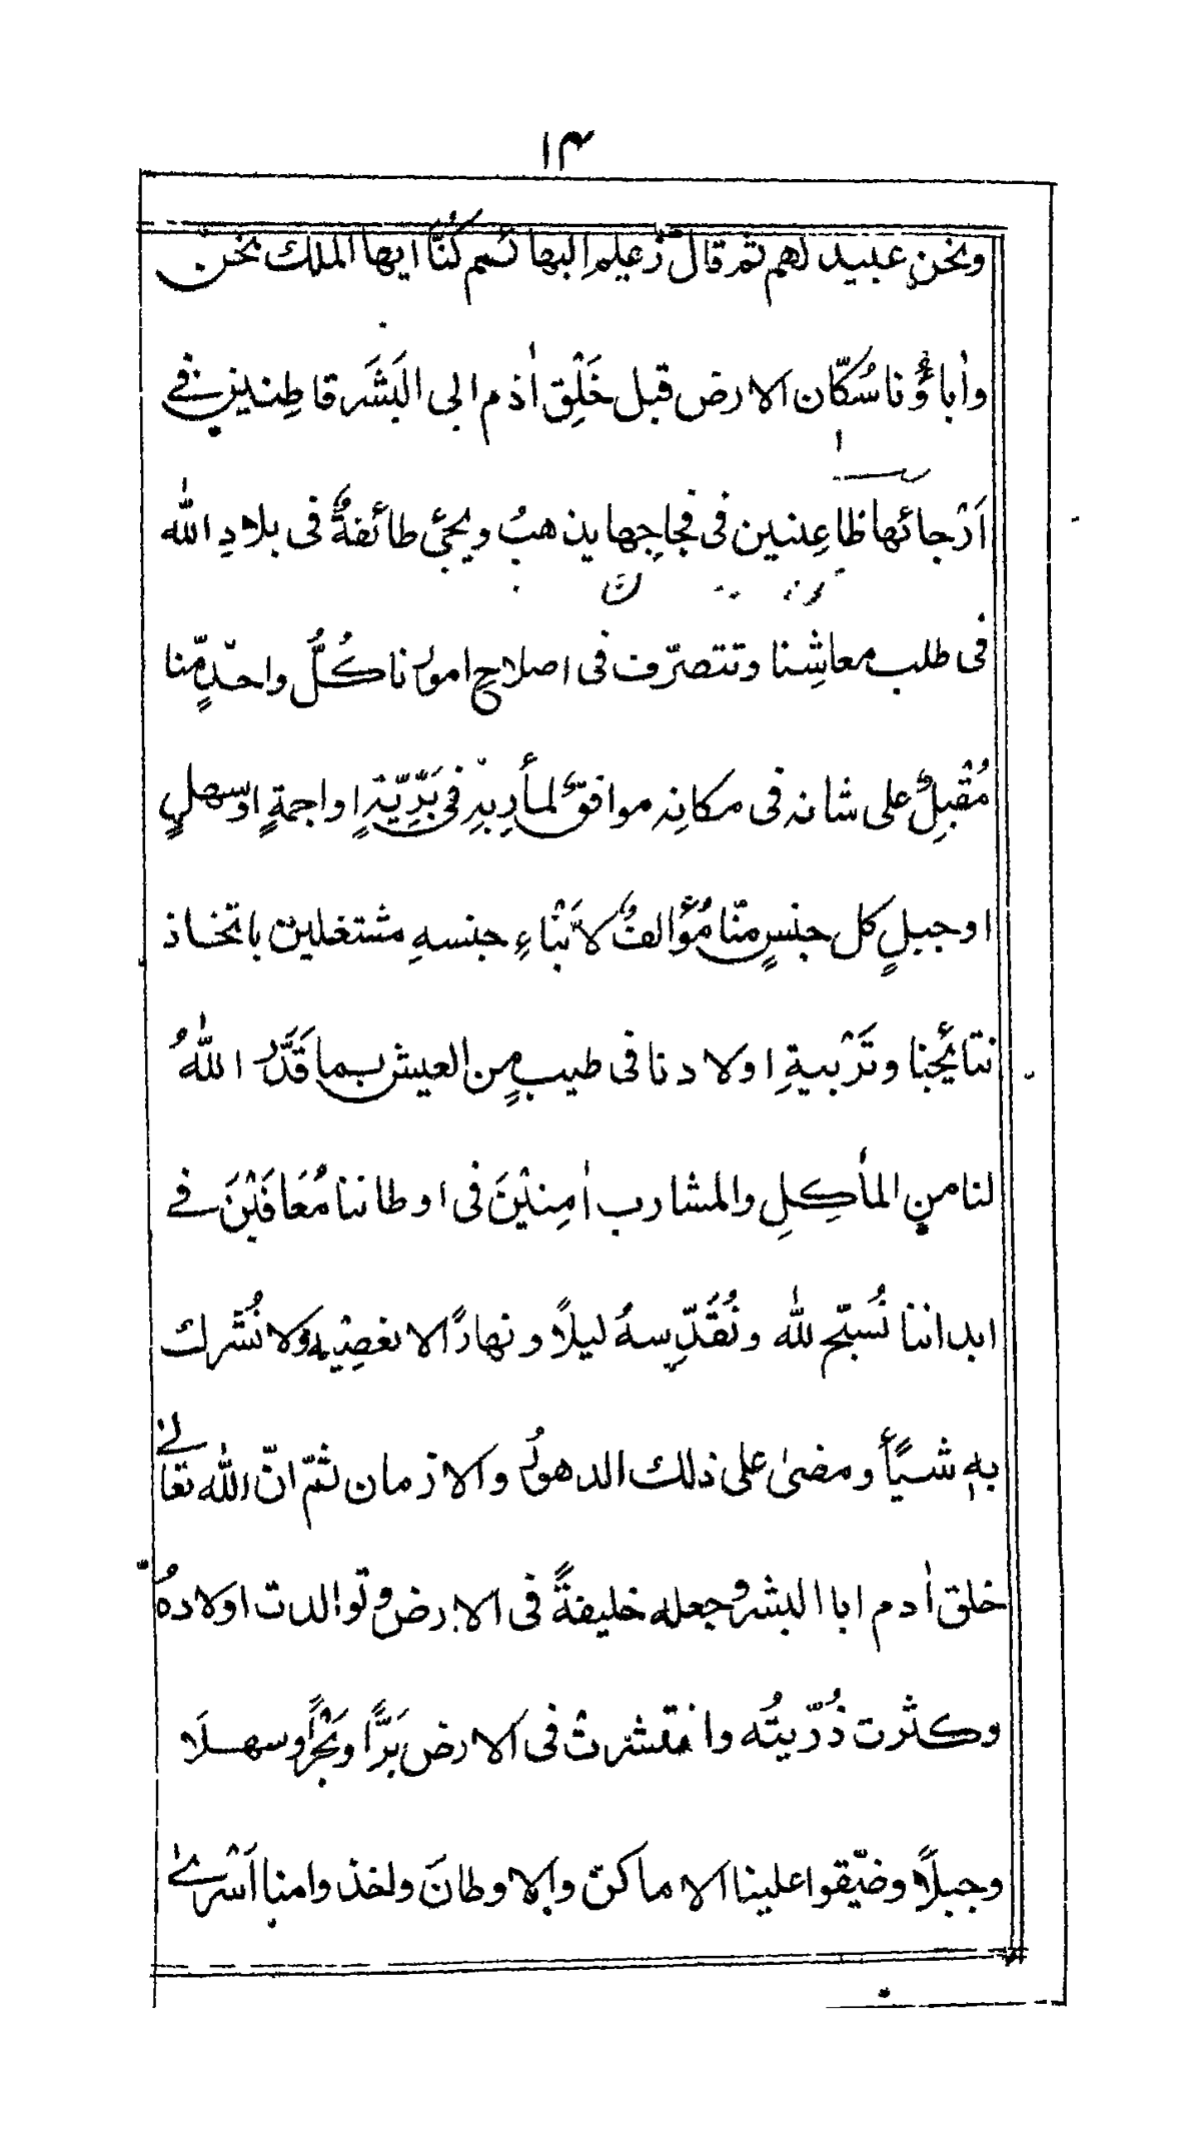 ١٣
ونحن عبيد لهم ثم قال زعيم البهائم كُنَّا ايها الملك نحن
واٰباؤُنا سُكّان الارض قبل خَلْقِ اٰدم ابى البَشَر قاطِنين في
اَرْجائها ظاعِنين فى فجاجِها يذهبُ ويجئ طائفةٌ فى بلادِ الله
فى طلب معاشِنا وتتصرّف فى اصلاحِ امورنا كُلُّ واحدٍ مّنا
مُقْبِلٌ على شانه فى مكانِه موافقٌ لمأرِبِه فى بَرِّيّةٍ او اجمةٍ او سهلٍ
او جبلٍ كل جنسٍ منّا مُؤَالفٌ لاَبْناءِ جنسهِ مشتغلين باتخاذ
نتائِجنا وتَرْبيةِ اولادنا فى طيبٍ من العيش بما قَدَّرَ اللهُ
لنا من المأكِلِ والمشارب اٰمِنيْنَ فى اوطاننا مُعَافَيْنَ في
ابداننا نُسَبّح لله ونُقَدِّسهُ ليلًا ونهارًا لا نعصِيْه ولا نُشْرك
بهٖ شيًأ ومضىٰ على ذلك الدهورُ والازمان ثمّ انّ الله تعالى
خلق اٰدم ابا البشر وجعله خليفةً فى الارض وتوالدت اولادهُ
وكثرت ذُرّيتُه وانتشرتْ فى الارض بَرًّا وبَحْرًا وسهلًا
وجبلًا وضيّقوا علينا الاماكنَ والاوطانَ واخذوا منا اَسْرىٰ